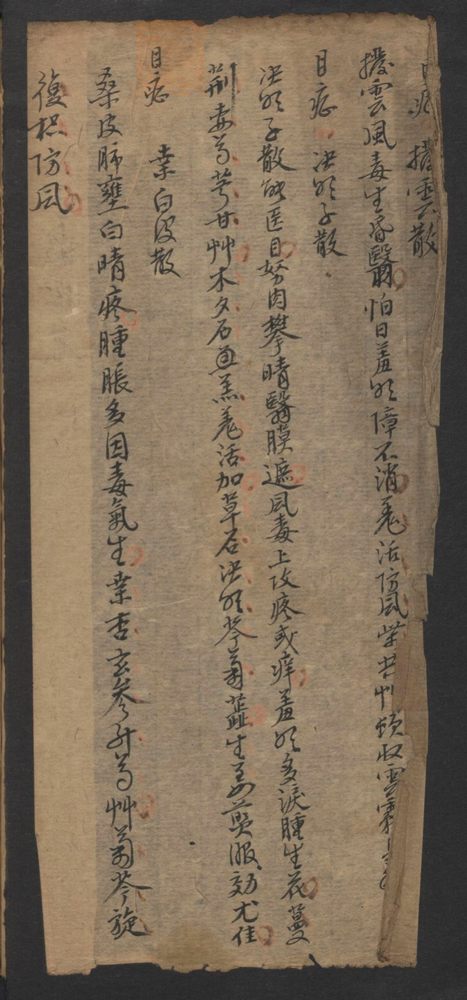 目症 撥雲散
撥雲風毒生昏翳怕日羞明障不消羌活防風柴甘艸煩収雲霧
目症 决明子散
决明子散能医目努肉攀晴翳膜遮風毒上攻疼或痒羞明多淚腫生花蔓
荊芎甘艸木夕石羌活加草石决明芩菊生姜煎服効尤佳
目症 桒白皮散
桑皮肺壅白晴疼腫脹多因毒氣生杏玄參升芎艸菊芩旋
復枳防風